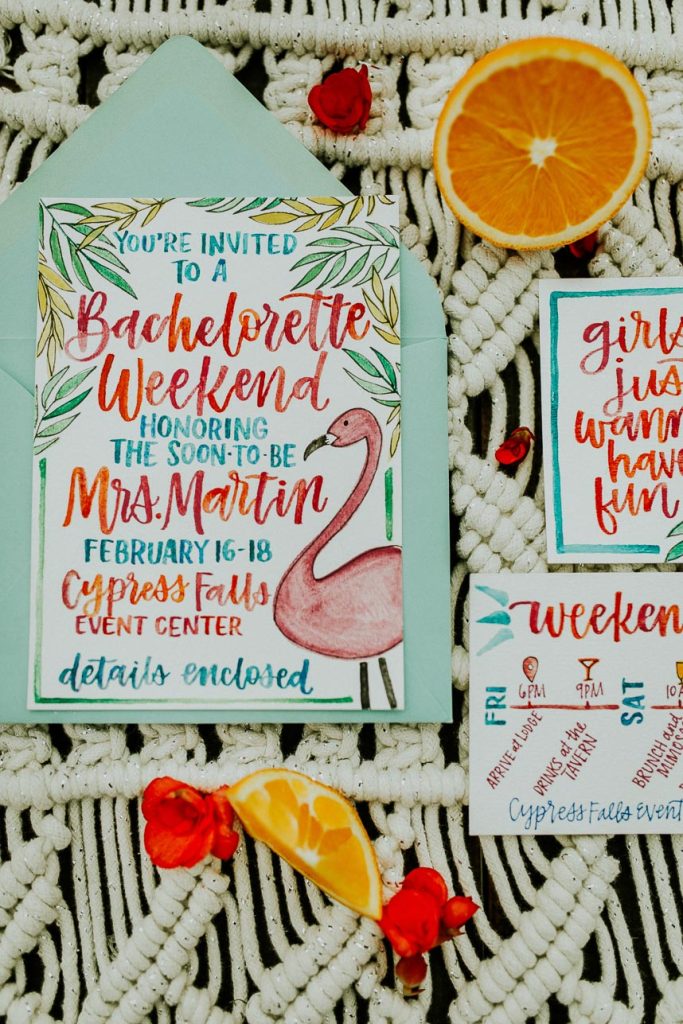 YOU'RE INVITED
TO A
Bachelorette
Weekend
HONORING
THE SOON-TO-BE
Mrs. Martin
FEBRUARY 16-18
Cypress Falls
EVENT CENTER
details enclosed
girls
just
wanna
have
fun
weekend
FRI
6PM
ARRIVE at LODGE
9PM
DRINKS at the
TAVERN
SAT
BRUNCH and
Cypress Falls Event